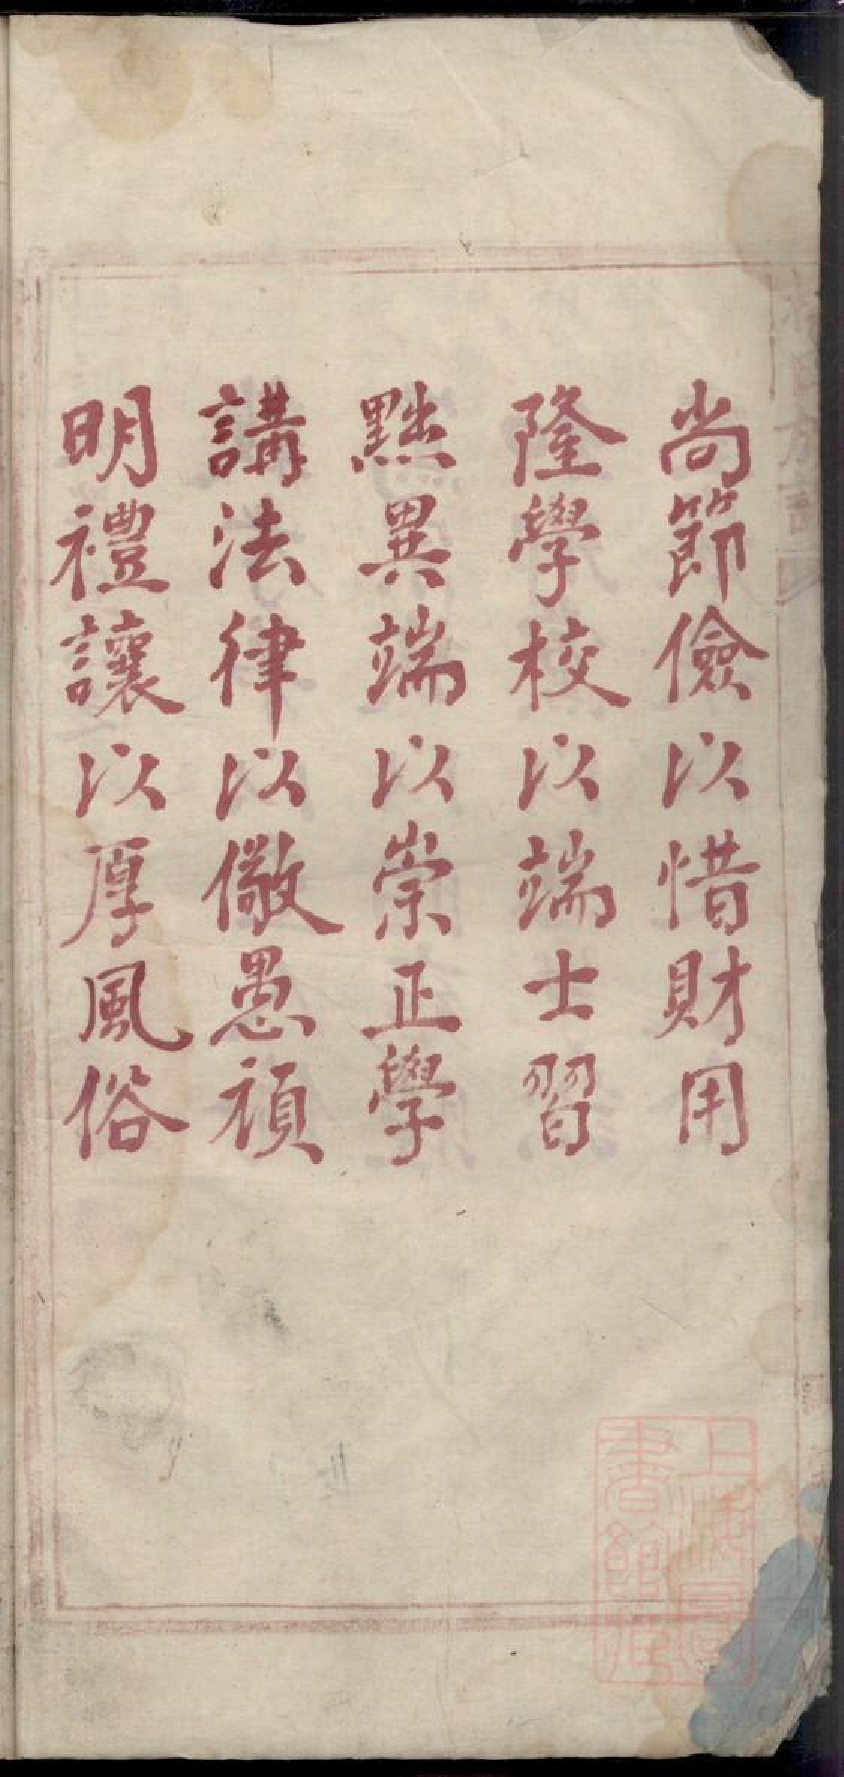 尚節儉以惜財用
隆學校以端士習
黜異端以崇正學
講法律以儆愚頑
明禮讓以厚風俗
上海圖
書館藏